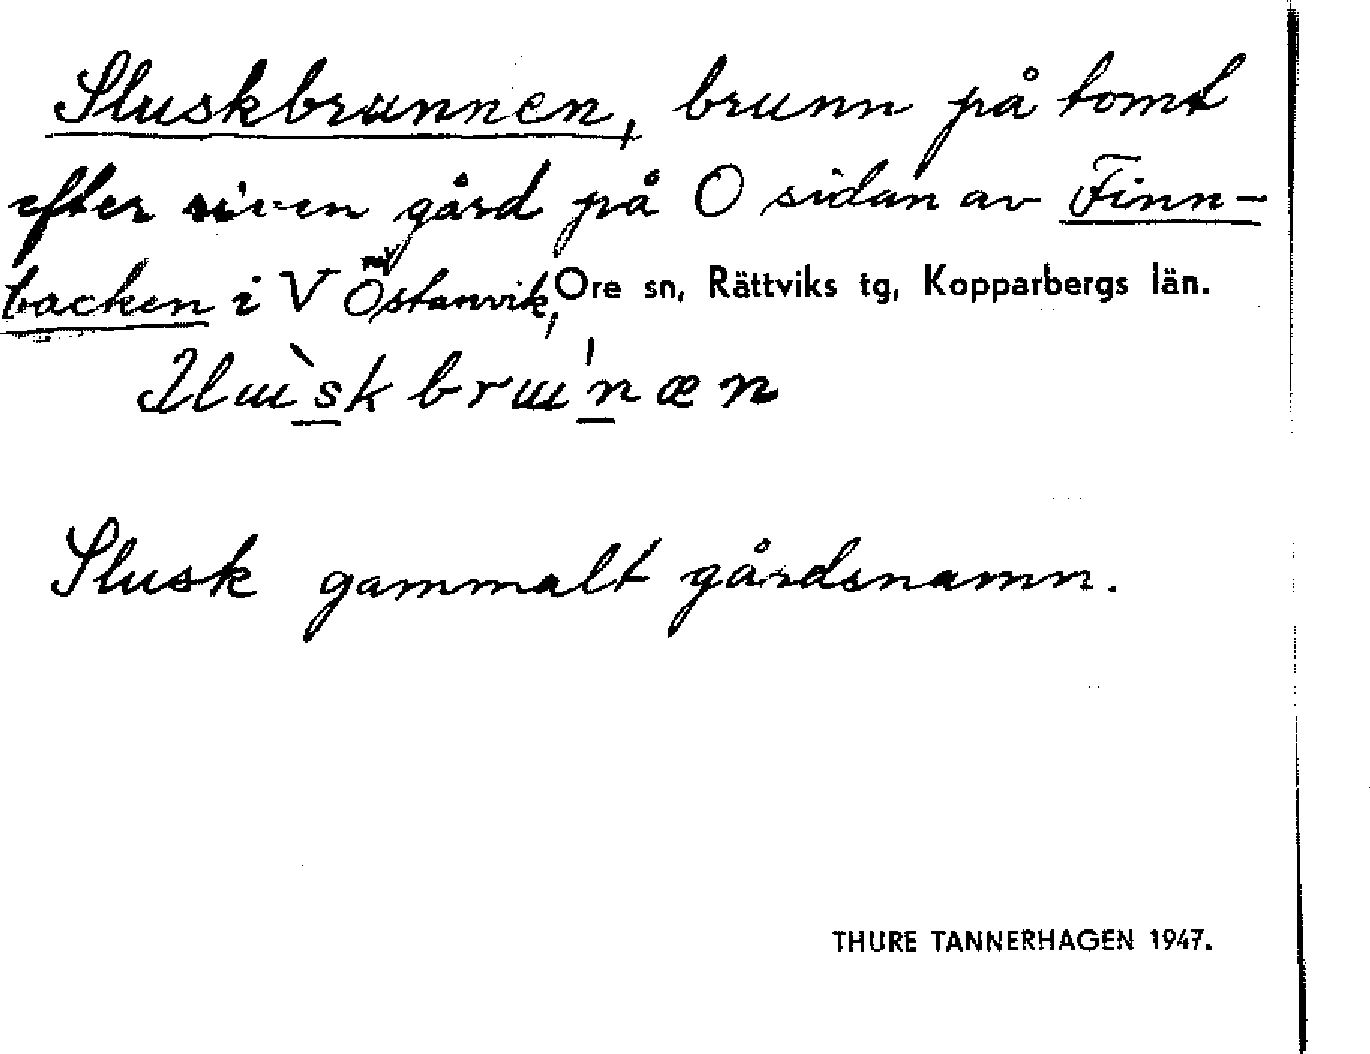 Sluskbrunnen, brunn på tomt
efter riven gård på O sidan av Finn-
backen i V Östanvik, Ore sn, Rättviks tg, Kopparbergs län.
Slusk gammalt gårdsnamn.
THURE TANNERHAGEN 1947.